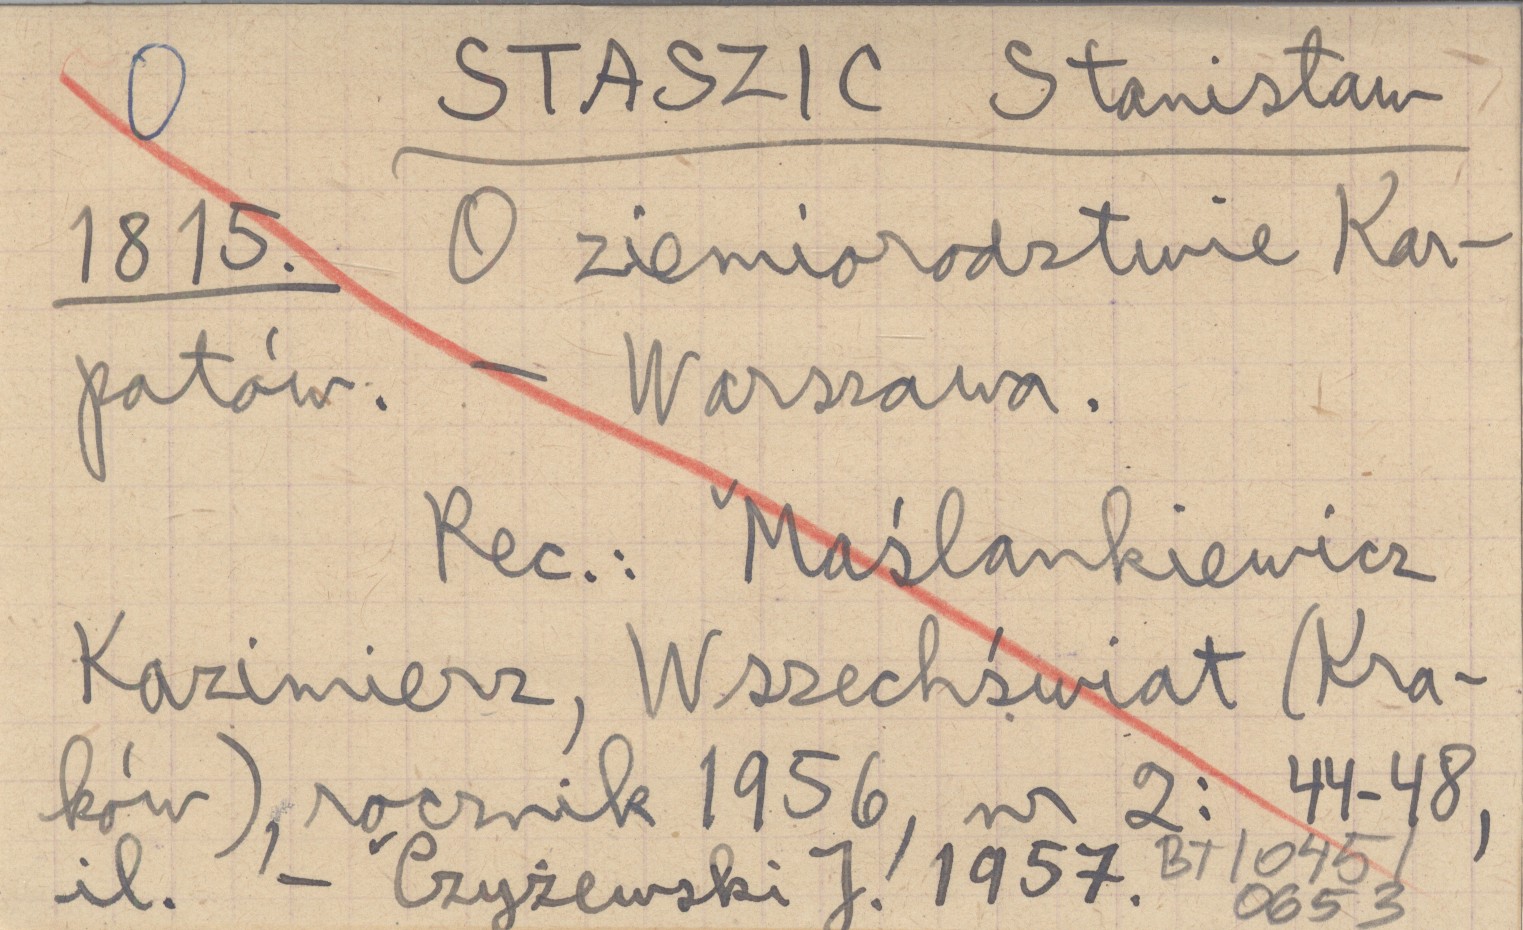 O STASZIC Stanisław
1815. O ziemiorodztwie Kar-
patów. — Warszawa.
Rec.: Maślankiewicz
Kazimierz, Wszechświat (Kra-
ków), rocznik 1956, nr 2: 44-48,
il. — Czyżewski J. 1957. BT/1045/
0653